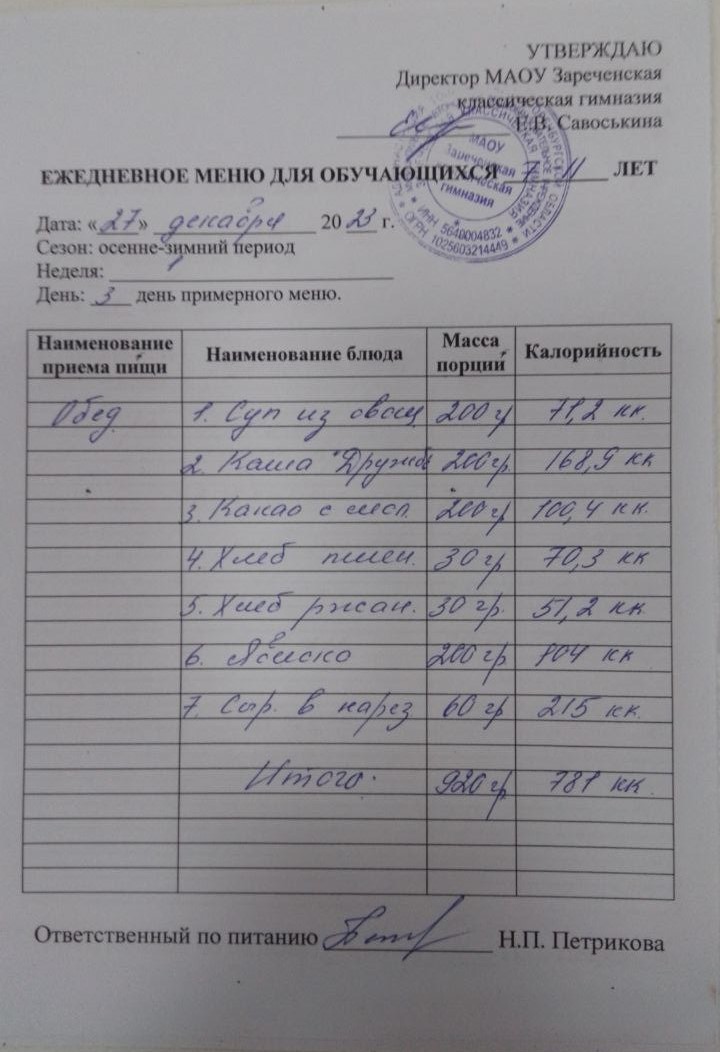 УТВЕРЖДАЮ
Директор МАОУ Зареченская
классическая гимназия
Е.В. Савоськина
МАОУ
Зареченская
классическая
гимназия
ИНН 5640004832
ОГРН 1025603214449
ЕЖЕДНЕВНОЕ МЕНЮ ДЛЯ ОБУЧАЮЩИХСЯ 7-11 ЛЕТ
Дата: «27» декабря 2023 г.
Сезон: осенне-зимний период
Неделя: 1
День: 3 день примерного меню.
Наименование приема пищи Наименование блюда Масса порций Калорийность
Обед 1. Суп из овощ 200 гр 71,2 кк.
2. Каша "Дружба 200 гр. 168,9 кк
3. Какао с мол. 200 гр 100,4 кк.
4. Хлеб пшен. 30 гр 70,3 кк
5. Хлеб ржан. 30 гр. 51,2 кк
6. Яблоко 200 гр 104 кк
7. Сыр. в нарез 60 гр 215 кк.
Итого. 920 гр 781 кк.
Ответственный по питанию Н.П. Петрикова